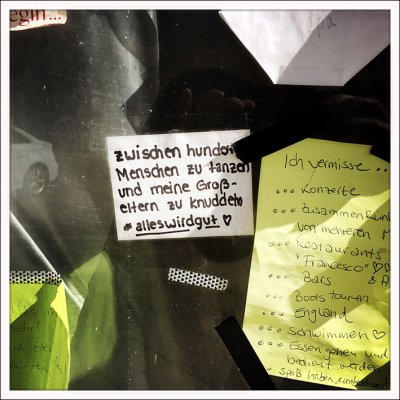 egin...
zwischen hundert
Menschen zu tanzen
und meine Groß-
eltern zu knuddeln
#alleswirdgut ♡
Ich vermisse ..
... Konzerte
... Zusammenkün
von mehreren M
... Restaurants
"Francesco" ♡♡
... Bars & A
... Bootstouren
... England
... schwimmen ♡
... Essen gehen und
bedient werden
Spaß haben